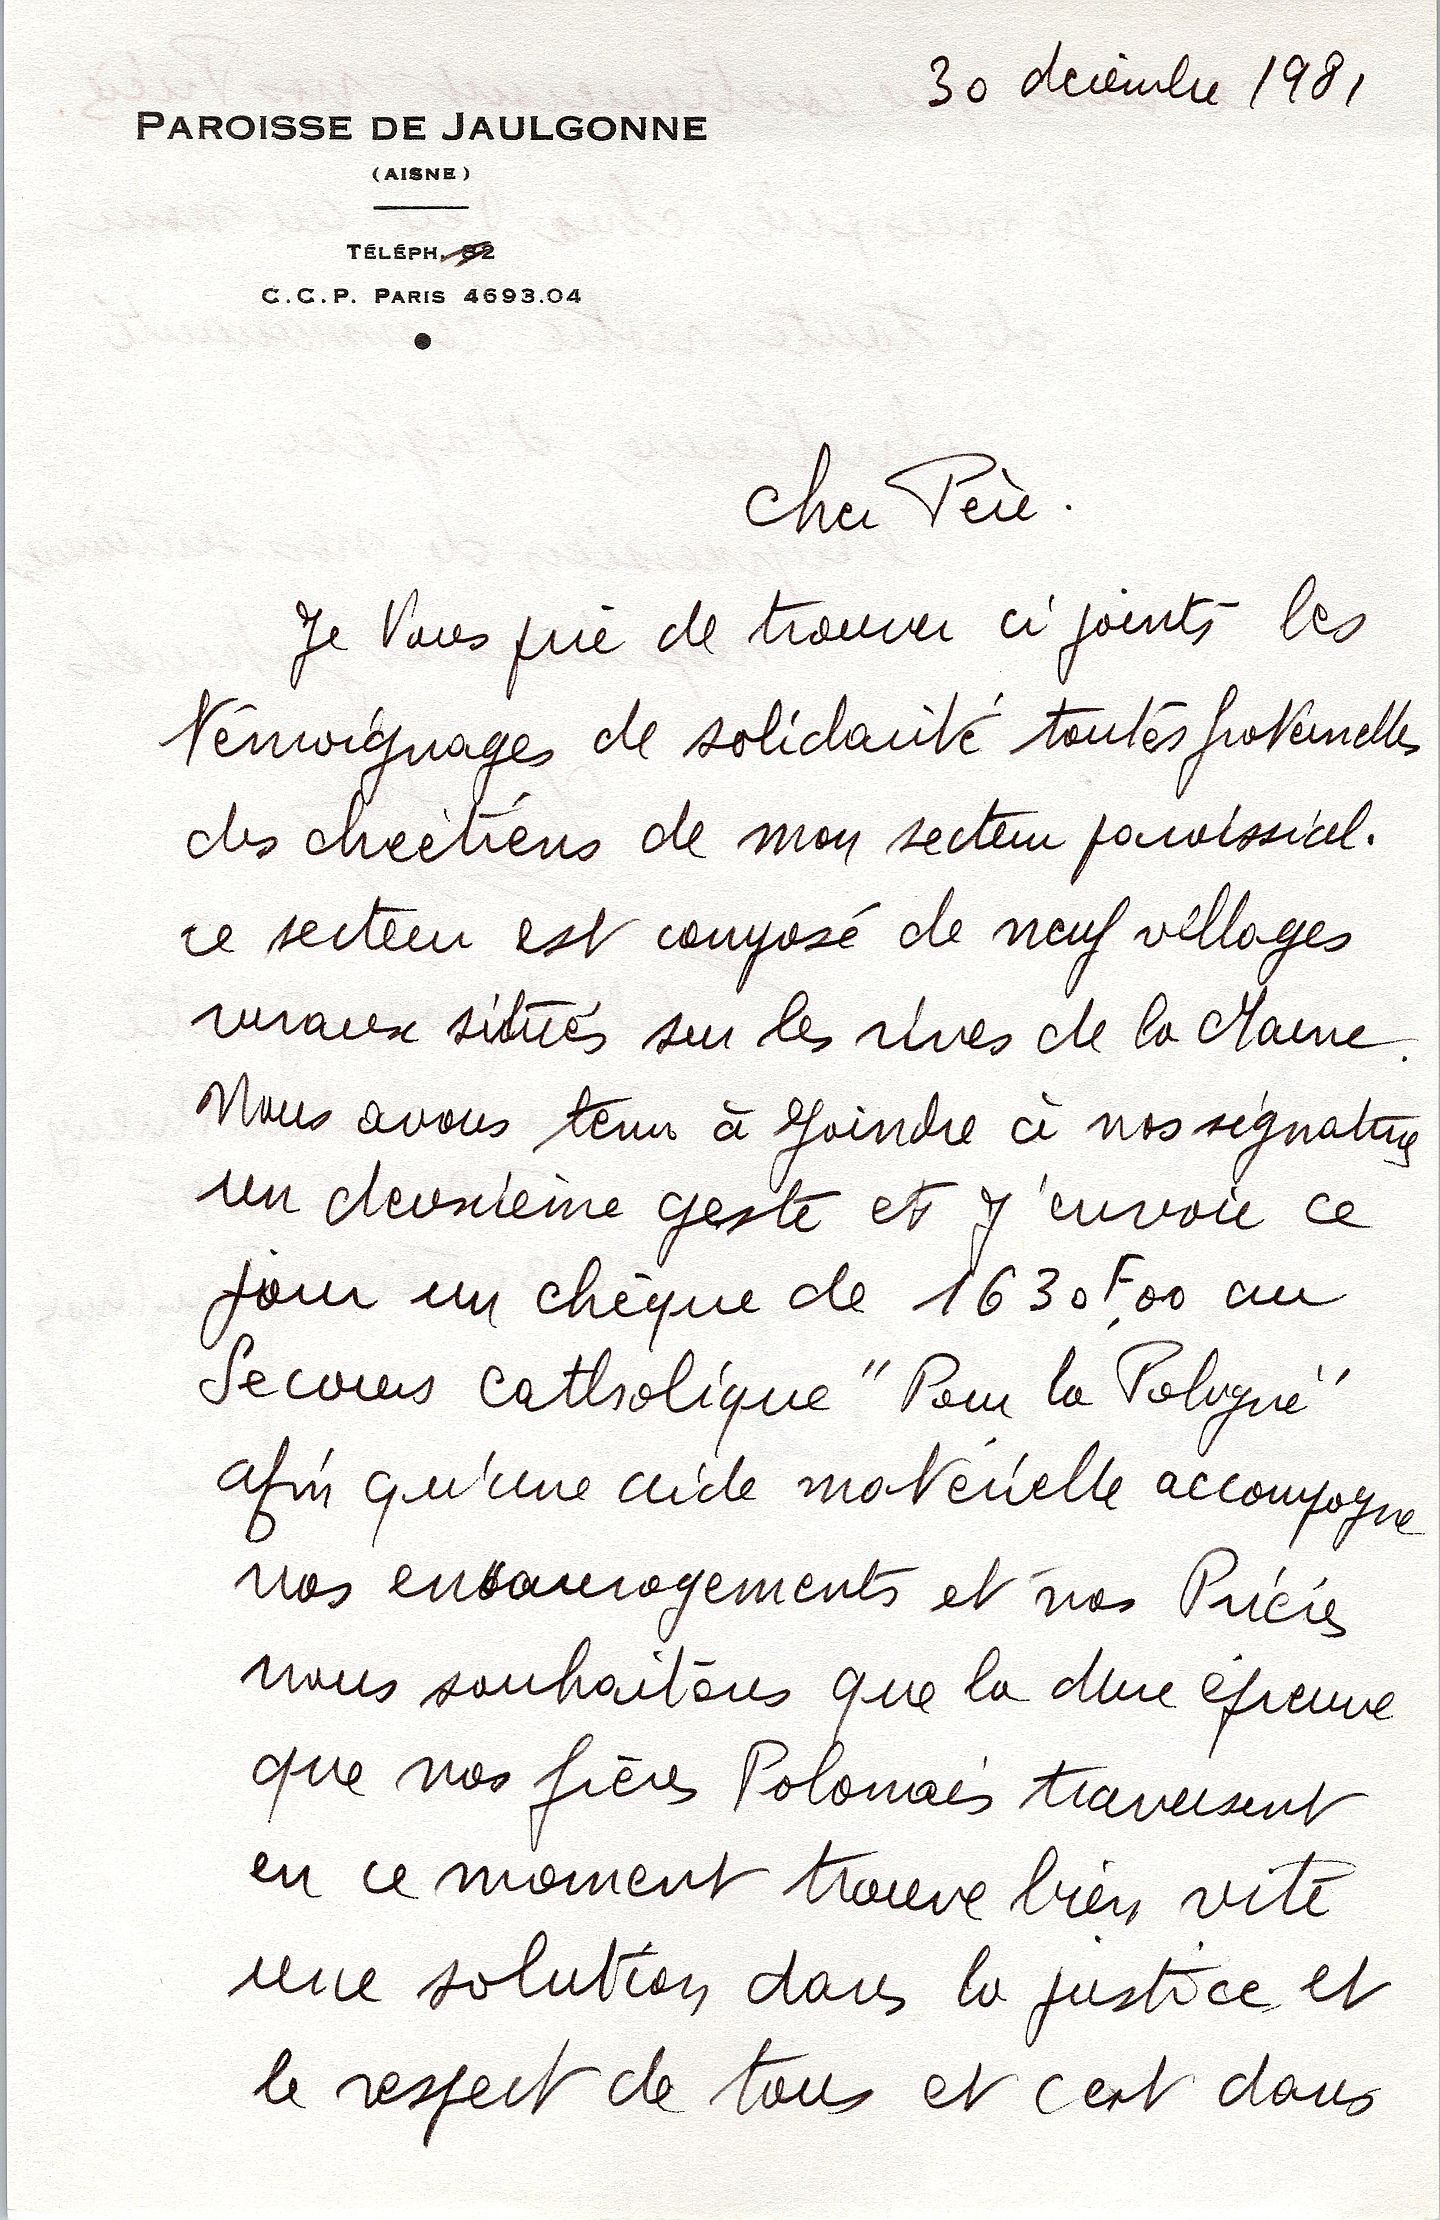 30 décembre 1981
PAROISSE DE JAULGONNE
(AISNE)
TÉLÉPH. 82
C.C.P. PARIS 4693.04
Cher Père.
Je Vous prie de trouver ci joints les
témoignages de solidarité toutes fraternelles
des chrétiens de mon secteur paroissial.
ce secteur est composé de neuf villages
ruraux situés sur les rives de la Marne.
Nous avons tenu à joindre à nos signatures
un deuxième geste et j'envoie ce
jour un chèque de 1630F,00 au
Secours catholique "Pour la Pologne"
afin qu'une aide matérielle accompagne
nos encouragements et nos Prières
nous souhaitons que la dure épreuve
que nos frères Polonais traversent
en ce moment trouve bien vite
une solution dans la justice et
le respect de tous et c'est dans